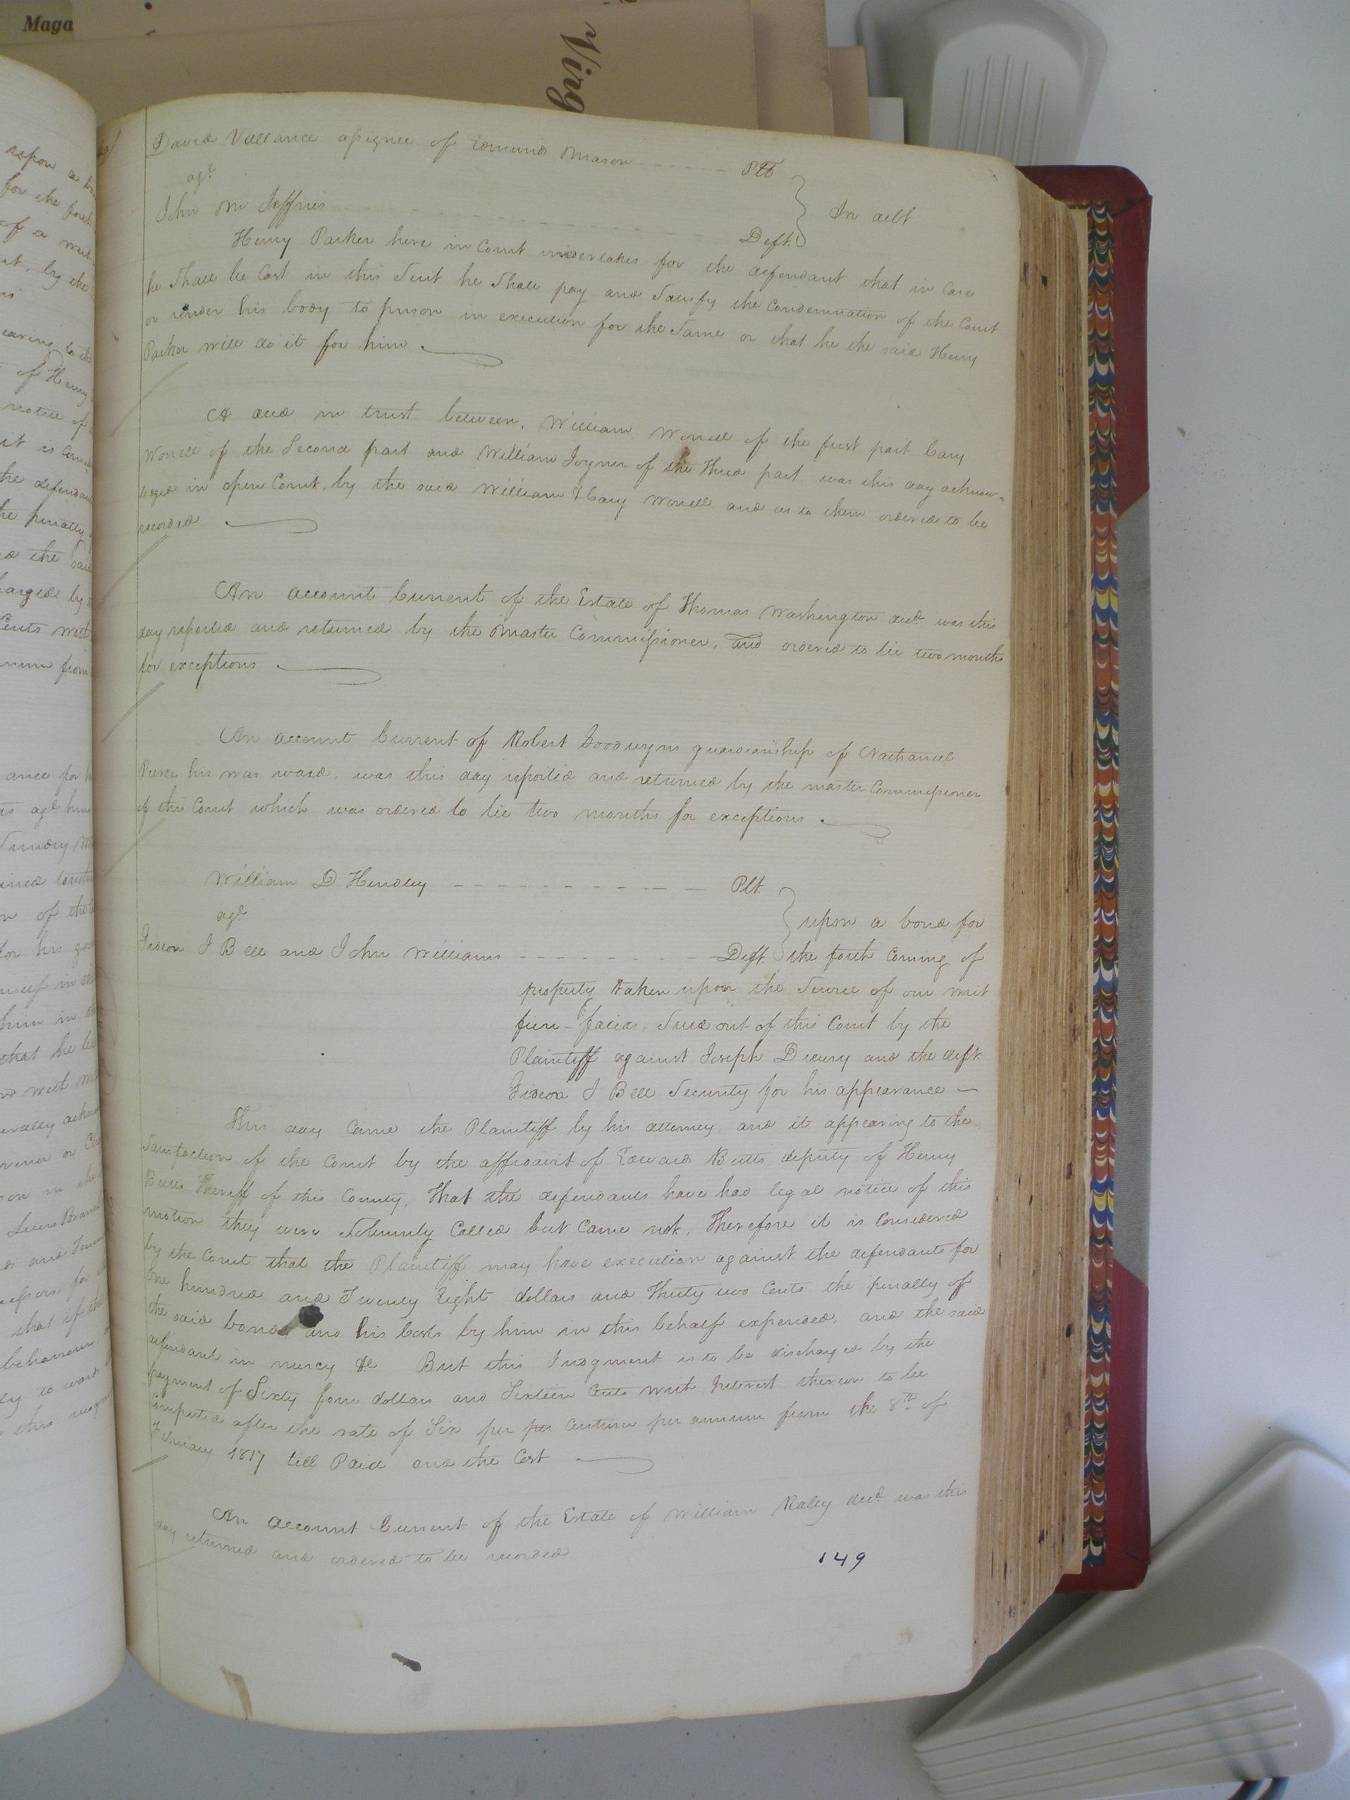 Maga
Virg
David Vallance assignee of Edmund Mason Plt
agt
John M Jeffries Deft.
In debt
Henry Parker here in Court undertakes for the defendant that in Case
he Shall be Cast in this Suit he Shall pay and Satisfy the Condemnation of the Court
or render his body to prison in execution for the Same or that he the said Henry
Parker will do it for him
A deed in trust between, William Worrell of the first part Cary
Worrell of the Second part and William Joyner of the Third part was this day acknow-
ledged in open Court, by the said William & Cary Worrell and as to them ordered to be
recorded
An account Current of the Estate of Thomas Washington decd. was this
day reported and returned by the Master Commissioner, and ordered to lie two months
for exceptions
An account Current of Robert Goodwyns guardianship of Nathaniel
Pierce his was ward, was this day reported and returned by the master Commissioner
of this Court which was ordered to lie two months for exceptions.
William D Hendley Plt.
agt.
Gideon J Bell and John Williams Deft
upon a bond for
the forth Coming of
property taken upon the Service of our writ
fieri-facias, Sued out of this Court by the
Plaintiff against Joseph Dreury and the deft.
Gideon J Bell Security for his appearance
This day Came the Plaintiff by his attorney and it appearing to the
Satisfaction of the Court by the affidavit of Edward Butts deputy of Henry
Butts Sheriff of this County, That the defendants have had legal notice of this
motion they were Solemnly Called but Came not, Therefore it is Considered
by the Court that the Plaintiff may have execution against the defendants for
One hundred and Twenty Eight dollars and Thirty two Cents the penalty of
the said bond and his Costs by him in this behalf expended, and the said
defendant in mercy &c But this Judgment is to be discharged by the
payment of Sixty four dollars and Sixteen Cents with Interest thereon to be
Computed after the rate of Six per per Centum per annum from the 8th. of
February 1817 till Paid and the Cost
An account Current of the Estate of William Raley decd. was this
day returned and ordered to be recorded
149